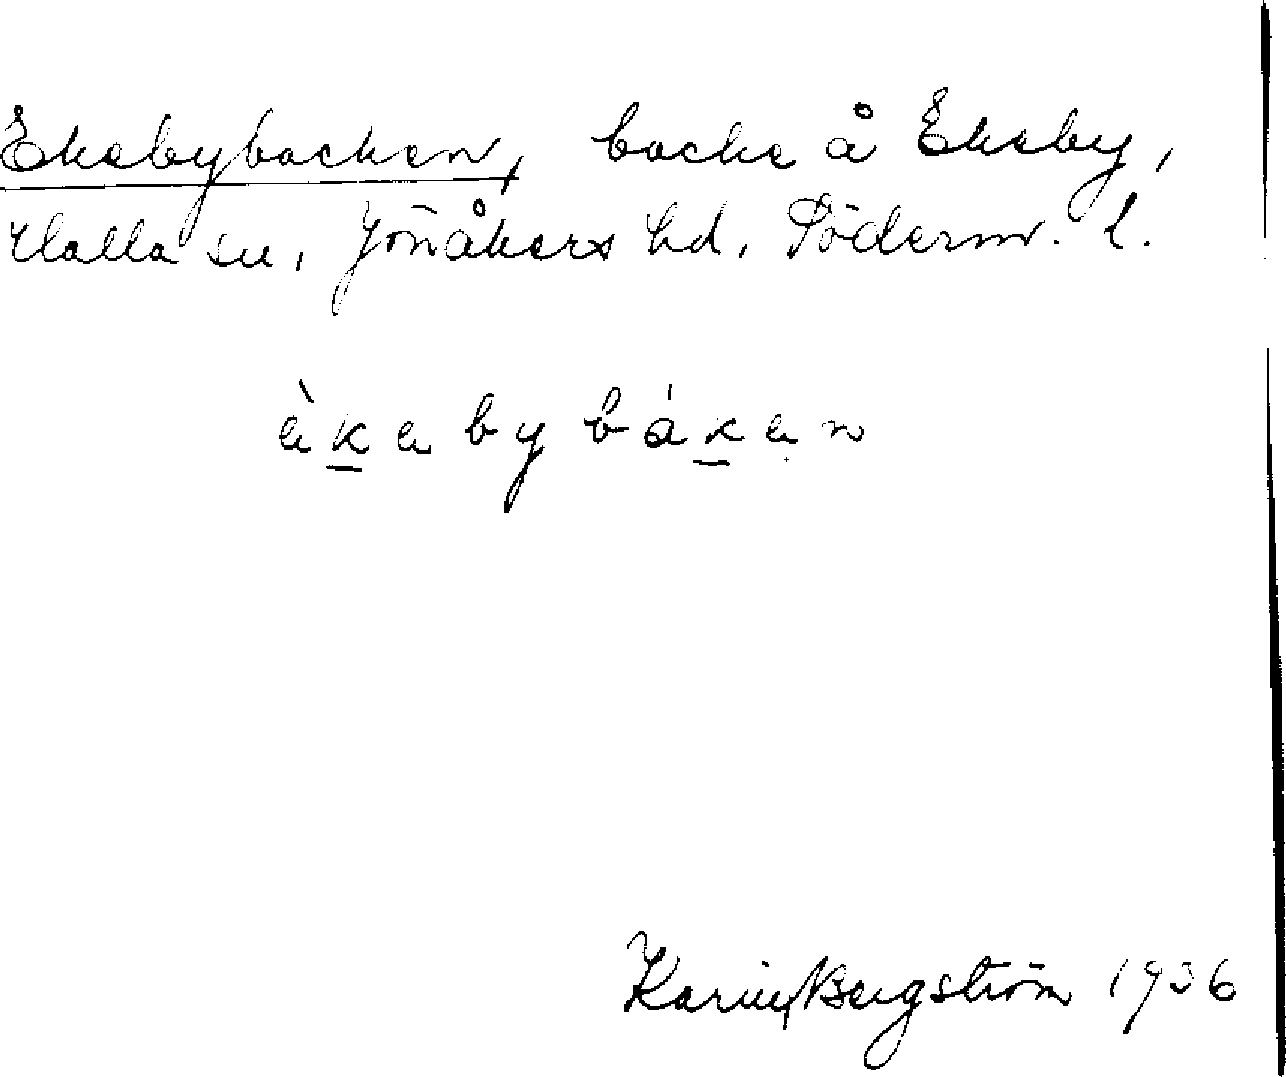 Ekebybacken, backe å Ekeby,
Halla sn, Jönåkers hd, Söderm. l.
èkebybáken
Karin Bergström 1936